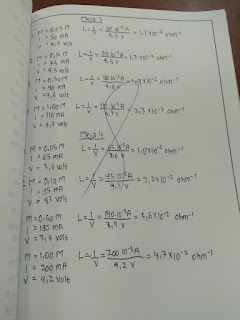 Meja 3
M = 0,05 M
I = 50 mA
V = 4,4 volt
L = 1/V = 50·10⁻³A / 4,4 V = 1,1×10⁻² ohm⁻¹
M = 0,10 M
I = 75 mA
V = 4,5 volt
L = 1/V = 75·10⁻³A / 4,5 V = 1,7×10⁻² ohm⁻¹
M = 0,50 M
I = 90 mA
V = 4,6 volt
L = 1/V = 90·10⁻³A / 4,6 V = 1,9×10⁻² ohm⁻¹
M = 1,00 M
I = 110 mA
V = 4,7 volt
L = 1/V = 110·10⁻³A / 4,7 V = 2,3×10⁻² ohm⁻¹
Meja 4
M = 0,05 M
I = 65 mA
V = 3,6 volt
L = 1/V = 65·10⁻³A / 3,6 V = 1,8×10⁻² ohm⁻¹
M = 0,10 M
I = 95 mA
V = 4,1 volt
L = 1/V = 95·10⁻³A / 4,3 V = 2,2×10⁻² ohm⁻¹
M = 0,50 M
I = 190 mA
V = 3,9 volt
L = 1/V = 190·10⁻³A / 3,9 V = 3,6×10⁻² ohm⁻¹
M = 1,00 M
I = 200 mA
V = 4,2 volt
L = 1/V = 200·10⁻³A / 4,2 V = 4,7×10⁻² ohm⁻¹